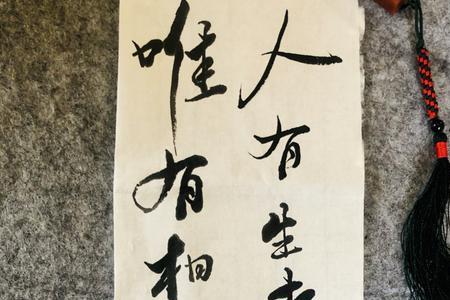 人有生
唯有相